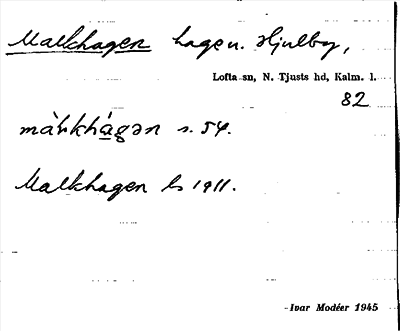 Malkhagen hage u. Hjulby,
Lofta sn, N. Tjusts hd, Kalm. l.
82
s. 54.
Malkhagen ls 1911.
Ivar Modéer 1945